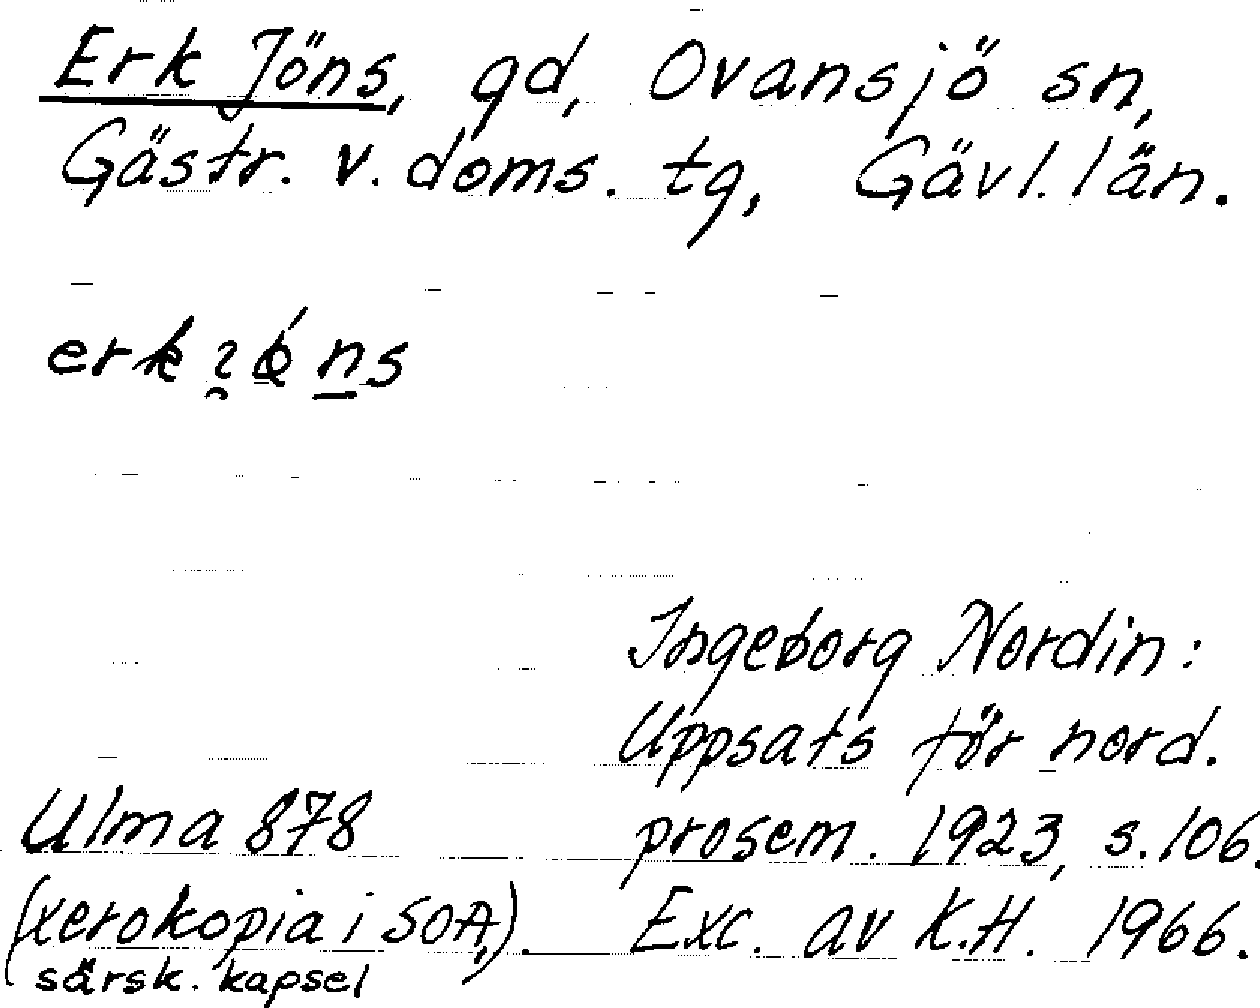 Erk Jöns, gd, Ovansjö sn,
Gästr. v. doms. tg, Gävl. län.
Ingeborg Nordin:
Uppsats för nord.
prosem. 1923, s. 106.
Exc. av K.H. 1966.
Ulma 878
(xerokopia i SOA,).
särsk. kapsel